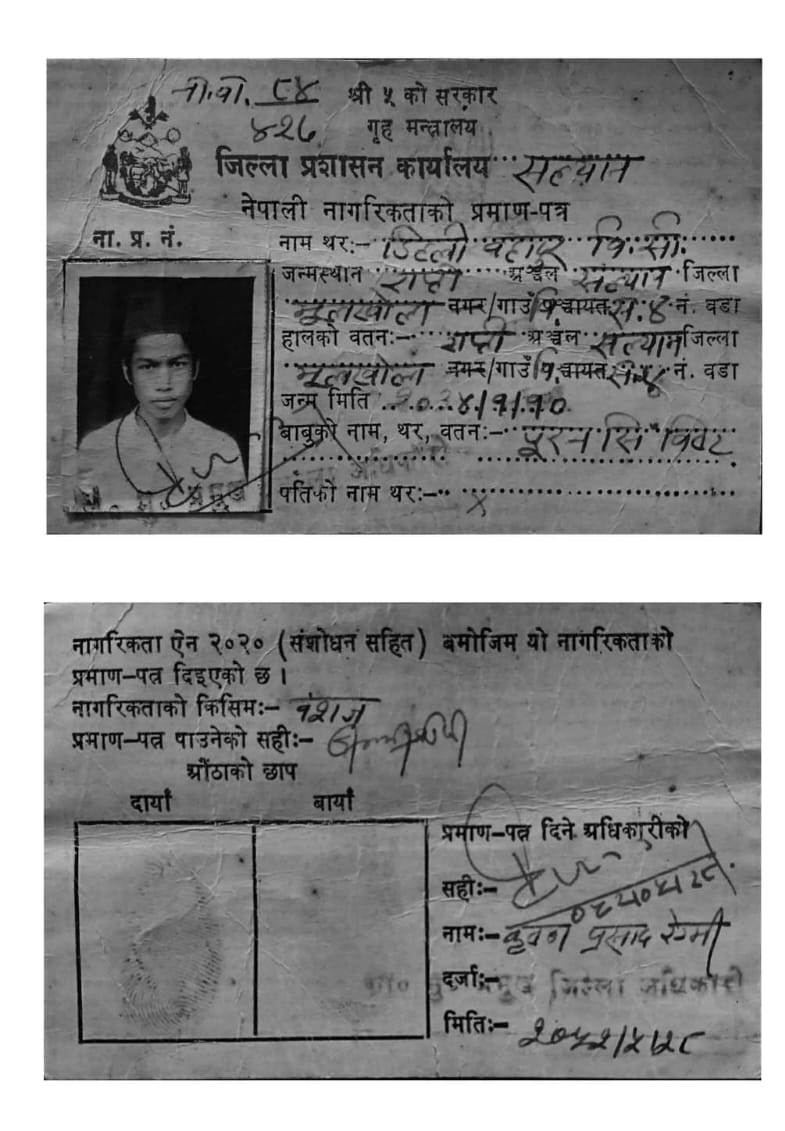 श्री ५ को सरकार
गृह मन्त्रालय
जिल्ला प्रशासन कार्यालय सल्यान
नेपाली नागरिकताको प्रमाण-पत्र
ना. प्र. नं.
नाम थर:- डिल्ली बहादुर वि. सी.
जन्मस्थान राप्ती अञ्चल सल्यान जिल्ला
मूलखोला नगर/गाउँ पञ्चायत नं. वडा
हालको वतन:- राप्ती अञ्चल सल्यान जिल्ला
मूलखोला नगर/गाउँ पञ्चायत नं. वडा
जन्म मिति
बाबुको नाम, थर, वतन:-
पतिको नाम थर:- x
नागरिकता ऐन २०२० (संशोधन सहित) बमोजिम यो नागरिकताको
प्रमाण-पत्र दिइएको छ ।
नागरिकताको किसिम:- वंशज
प्रमाण-पत्र पाउनेको सही:-
औंठाको छाप
दायाँ बायाँ
प्रमाण-पत्र दिने अधिकारीको
सही:-
नाम:- प्रसाद
दर्जा:- प्रमुख जिल्ला अधिकारी
मिति:- २०५२/५/२८